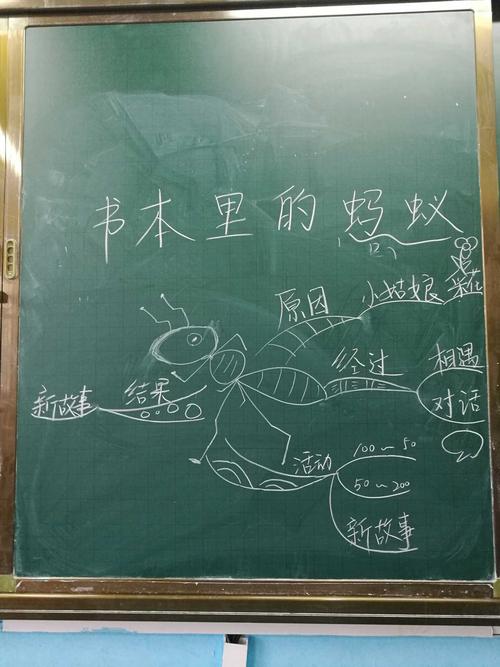 书本里的蚂蚁
原因 小姑娘 采花
经过 相遇
对话
新故事 结果
活动 100～50
50～200
新故事